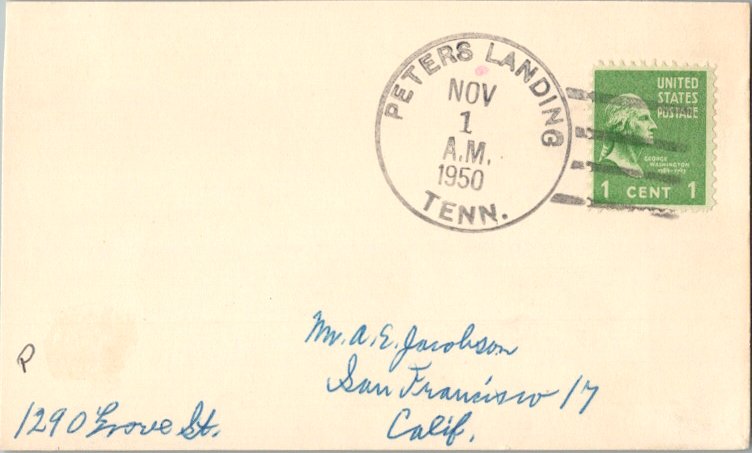 PETERS LANDING
NOV
1
A.M.
1950
TENN.
UNITED
STATES
POSTAGE
GEORGE
WASHINGTON
1 CENT 1
Mr. A. E. Jacobson
San Francisco 17
Calif.
R
1290 Grove St.